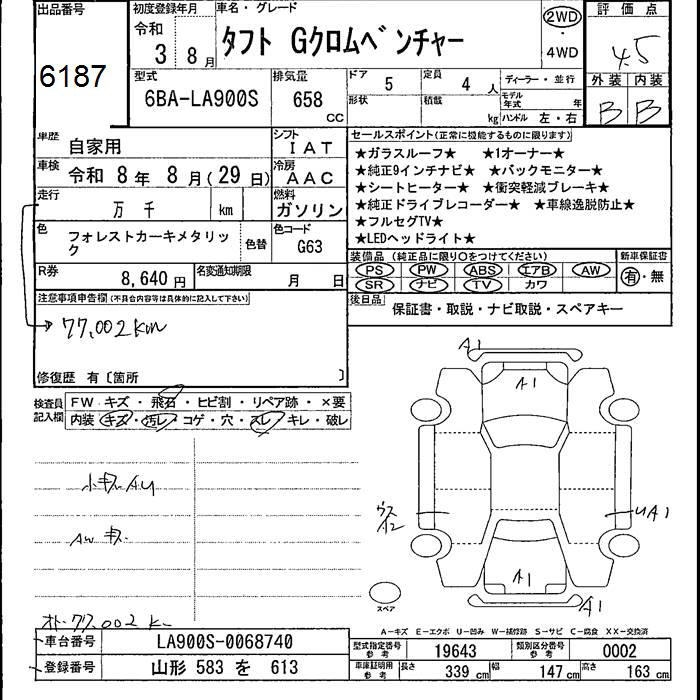 出品番号
6187
初度登録年月
令和
3年 8月
車名・グレード
タフト Gクロムベンチャー
2WD
・
4WD
評価点
4.5
外装 内装
B B
型式
6BA-LA900S
排気量
658
CC
ドア 5
定員 4人
形状
積載 kg
ディーラー・並行
モデル年式 年
ハンドル 左・右
車歴
自家用
シフト
IAT
車検
令和 8年 8月(29日)
冷房
AAC
走行
万 千 km
燃料
ガソリン
色
フォレストカーキメタリック
色替
色コード
G63
R券
8,640 円
名変通知期限
月 日
セールスポイント(正常に機能するものに限ります)
★ガラスルーフ★ ★1オーナー★
★純正9インチナビ★ ★バックモニター★
★シートヒーター★ ★衝突軽減ブレーキ★
★純正ドライブレコーダー★ ★車線逸脱防止★
★フルセグTV★
★LEDヘッドライト★
装備品(純正品に限り○をつけてください)
PS PW ABS エアB AW
SR ナビ TV カワ
新車保証書
有・無
後日品
保証書・取説・ナビ取説・スペアキー
注意事項申告欄(不具合内容等は具体的に記入して下さい)
77,002km
修復歴 有〔箇所 〕
検査員記入欄
FW キズ・飛石・ヒビ割・リペア跡・×要
内装 キズ・汚レ・コゲ・穴・スレ・キレ・破レ
小キズAU
AW キズ
77.002 K
A1
A1
UA1
A1
A1
スペア
A-キズ E-エクボ U-凹み W-補修跡 S-サビ C-腐食 XX-交換済
車台番号
LA900S-0068740
登録番号
山形 583 を 613
型式指定番号 参考
19643
類別区分番号 参考
0002
車庫証明用 参考
長さ 339 cm
幅 147 cm
高さ 163 cm